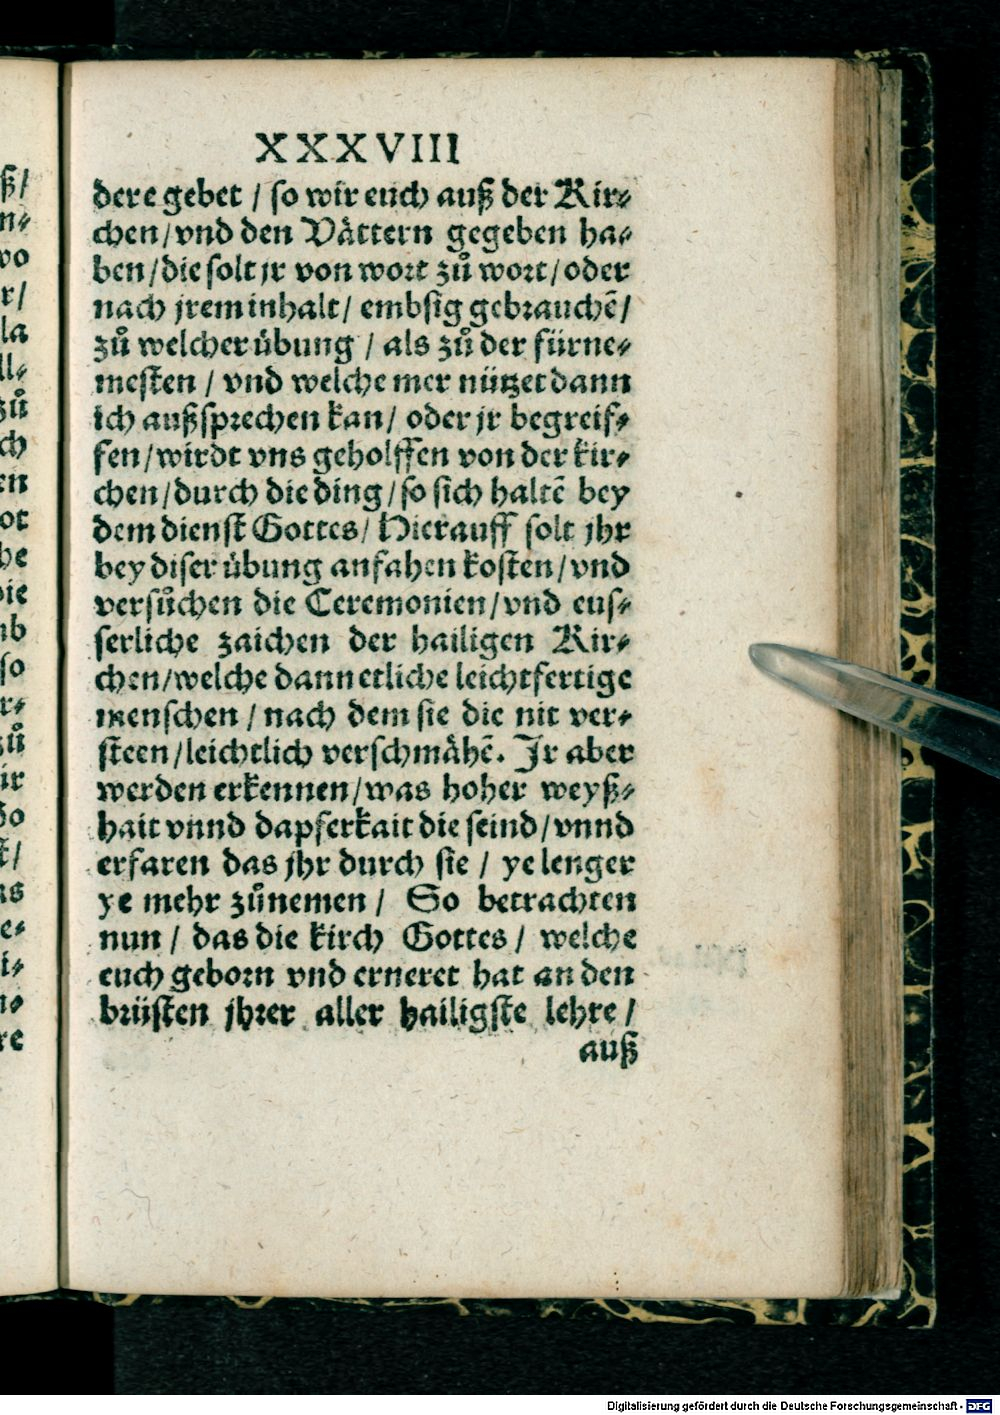 XXXVIII
dere gebet / so wir euch auß der Kir⸗
chen/vnd den Våttern gegeben ha⸗
ben/die solt jr von wort zů wort/oder
nach jrem inhalt/ embsig gebrauchē/
zů welcher übung / als zů der fürne⸗
mesten / vnd welche mer nützet dann
ich außsprechen kan/ oder jr begreif⸗
fen/wirdt vns geholffen von der kir⸗
chen/durch die ding/so sich haltē bey
dem dienst Gottes/ Hierauff solt jhr
bey diser übung anfahen kosten/vnd
versůchen die Ceremonien/vnd eus⸗
serliche zaichen der hailigen Kir⸗
chen/welche dann etliche leichtfertige
menschen / nach dem sie die nit ver⸗
steen/leichtlich verschmåhē. Jr aber
werden erkennen/was hoher weyß⸗
hait vnnd dapferkait die seind/vnnd
erfaren das jhr durch sie / ye lenger
ye mehr zůnemen / So betrachten
nun / das die kirch Gottes/ welche
euch geborn vnd erneret hat an den
brüsten jhrer aller hailigste lehre /
auß
ß/
n⸗
wo
r/
la
ll⸗
zů
ch
en
ot
he
die
nb
so
r⸗
zů
ir
So
t/
as
e⸗
i⸗
n⸗
re
Digitalisierung gefördert durch die Deutsche Forschungsgemeinschaft - DFG